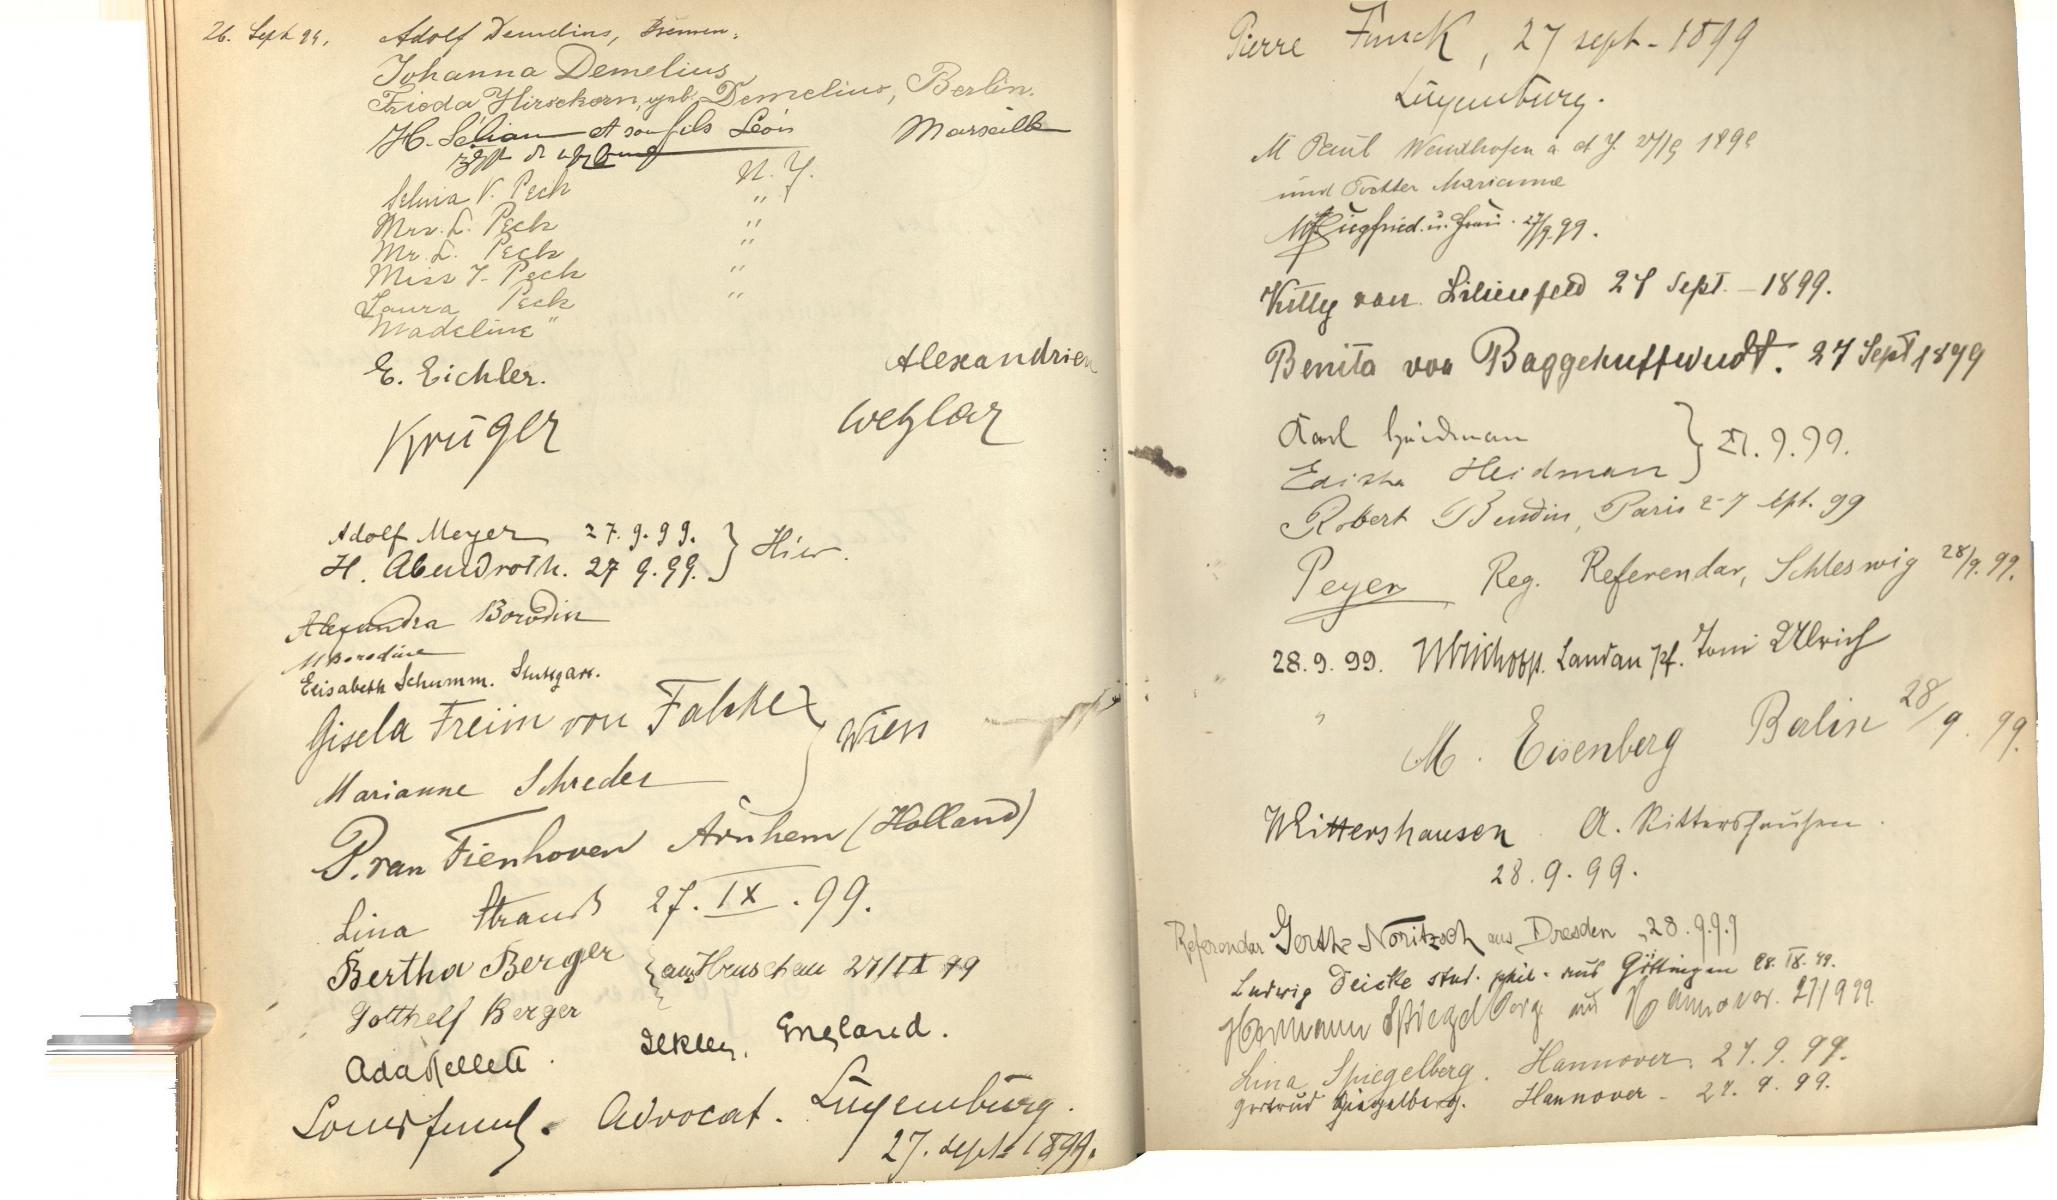 26. Sept 99. Adolf Demelius, Bremen.
Johanna Demelius
Frieda Hirsekorn, geb. Demelius, Berlin.
H. et son fils Léon Marseille
V. Peck N. Y.
Mrs. L. Peck "
Mr. L. Peck "
Miss J. Peck "
Laura Peck "
Madeline "
E. Eichler. Alexandrien
Krüger Wetzlar
Adolf Meyer 27. 9. 99. } Hier.
H. Abendroth. 27 9. 99.
Alexandra Borodin
M Borodine
Elisabeth Schumm. Stuttgart.
Gisela Freiin von Falcke } Wien
Marianne Schreder
P. van Tienhoven Arnhem (Holland)
Lina Strauß 27. IX. 99.
Bertha Berger } aus Hruschau 27/IX 99
Gotthelf Berger
Ada Kellett. Ilkley, England.
Louis Funck. Advocat. Luxemburg.
27. sept. 1899.
Pierre Funck, 27 sept - 1899
Luxemburg.
Paul 27/9 1899
und Tochter Marianne
Siegfried u. Frau. 27/9. 99.
Kitty von Lilienfeld 27 Sept. - 1899.
Benita von Baggehuffwudt. 27 Sept 1899
Karl Heidman } 27. 9. 99.
Editha Heidman
Robert Bendin, Paris 27 Spt. 99
Peyer Reg. Referendar, Schleswig 28/9. 99.
28. 9. 99. Landau Pf. Toni Ullrich
" M. Eisenberg Berlin 28/9. 99.
WRittershausen A. Rittershausen.
28. 9. 99.
Referendar Noritzsch aus Dresden 28. 9. 99
Ludwig Deicke stud. phil. aus Göttingen 28. IX. 99.
Hermann Spiegelberg aus Hannover. 27/9 99.
Lina Spiegelberg. Hannover. 27. 9. 99.
Gertrud Spiegelberg. Hannover - 27. 9. 99.